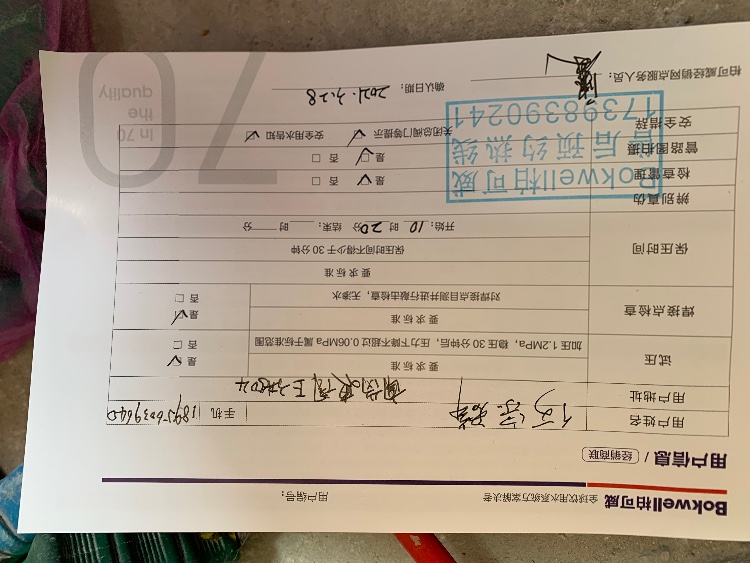 Bokwell柏可威 全球饮用水系统方案解决者 用户编号：
用户信息 / 经销商联
用户姓名 手机 18956039640
用户地址
试压 要求标准 是 否
加压1.2MPa，稳压30分钟后，压力下降不超过0.06MPa属于标准范围
焊接点检查 要求标准 是 否
对焊接点目测并进行敲击检查，无渗水
保压时间 要求标准
保压时间不得少于30分钟
开始：10时20分 结束： 时 分
辨别真伪
检查管理 是 否
管路图拍摄 是 否
安全措辞 关闭总阀门等提示 安全用水告知
Bokwell柏可威
售后预约热线
17398390241
柏可威经销网点服务人员： 确认日期：2021.7.28
In 70
the
quality
70